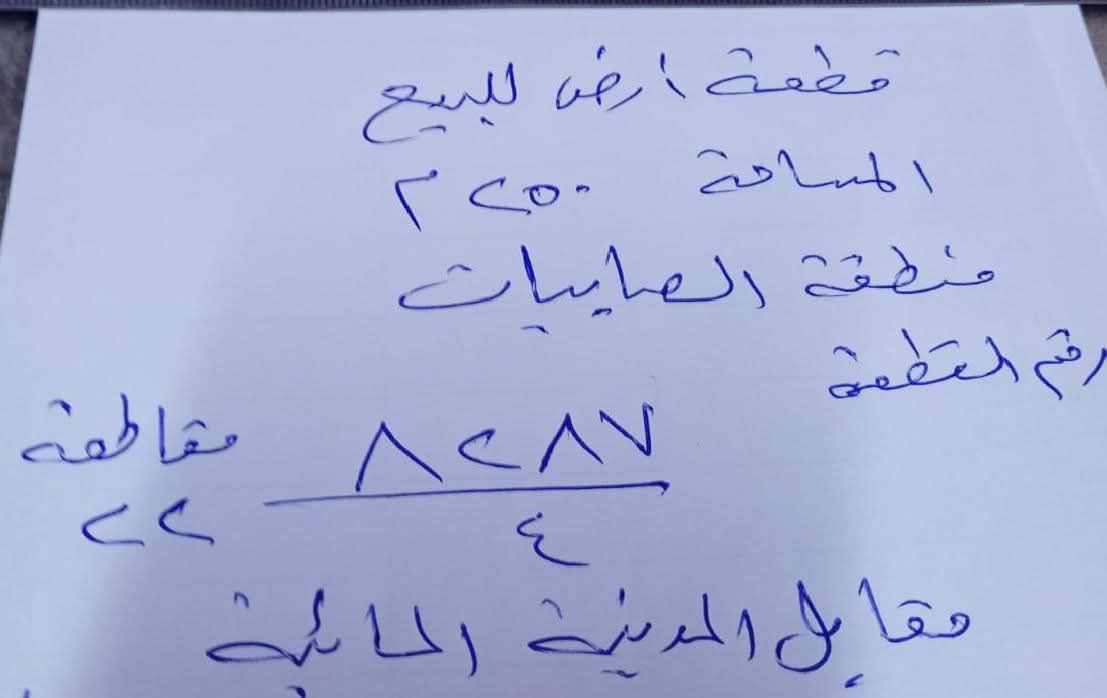 قطعة ارض للبيع
المساحة ٢٥٠ م
منطقة الصايبات
رقم القطعة
٨٢٨٧ مقاطعة
٤ ٢٢
مقابل المدينة المائية